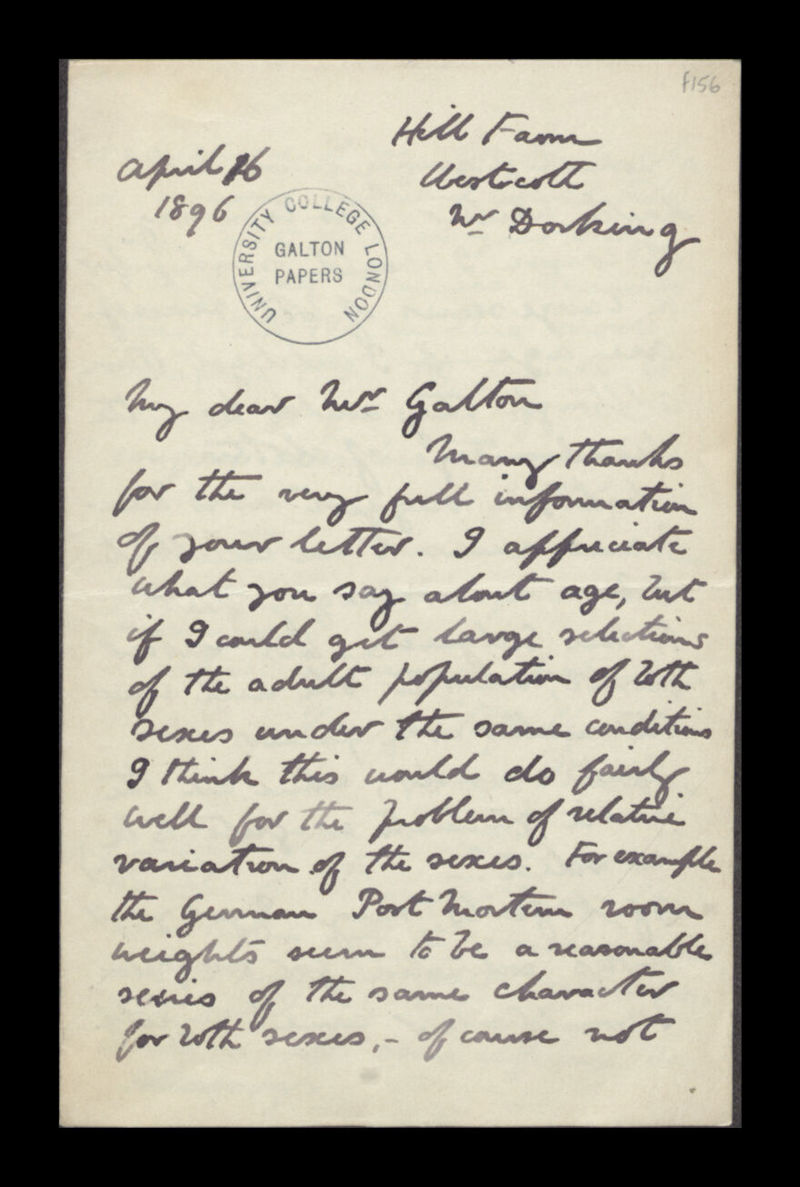 f156
Hill Farm
April 16
Westcott
1896
Nr Dorking
UNIVERSITY COLLEGE LONDON
GALTON
PAPERS
My dear Mr Galton
Many thanks
for the very full information
of your letter. I appreciate
what you say about age, but
if I could get large selections
of the adult population of both
sexes under the same conditions
I think this would do fairly
well for the problem of relative
variation of the sexes. For example
the German Post Mortem room
weights seem to be a reasonable
series of the same character
for both sexes, - of course not